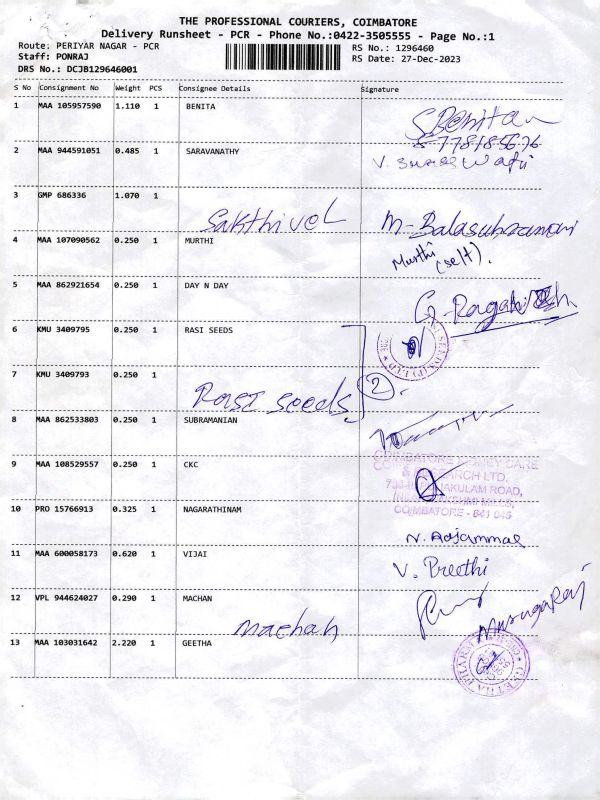 THE PROFESSIONAL COURIERS, COIMBATORE
Delivery Runsheet - PCR - Phone No.:0422-3505555 - Page No.:1
Route: PERIYAR NAGAR - PCR
RS No.: 1296460
Staff: PONRAJ
RS Date: 27-Dec-2023
DRS No.: DCJB129646001
S No Consignment No Weight PCS Consignee Details Signature
1 MAA 105957590 1.110 1 BENITA
S. Benita
2 MAA 944591051 0.485 1 SARAVANATHY
3 GMP 686336 1.070 1
Sakthivel M- Balasubramani
4 MAA 107090562 0.250 1 MURTHI
Murthi
(self).
5 MAA 862921654 0.250 1 DAY N DAY
6 KMU 3409795 0.250 1 RASI SEEDS
7 KMU 3409793 0.250 1
Rasi seeds 2
8 MAA 862533803 0.250 1 SUBRAMANIAN
9 MAA 108529557 0.250 1 CKC
COIMBATORE KIDNEY CARE
& RESEARCH LTD,
COIMBATORE - 641 045
10 PRO 15766913 0.325 1 NAGARATHINAM
N. Rajammal
11 MAA 600058173 0.620 1 VIJAI
V. Preethi
12 VPL 944624027 0.290 1 MACHAN
Machan Murugaraj
13 MAA 103031642 2.220 1 GEETHA
GEETHA PHARMA